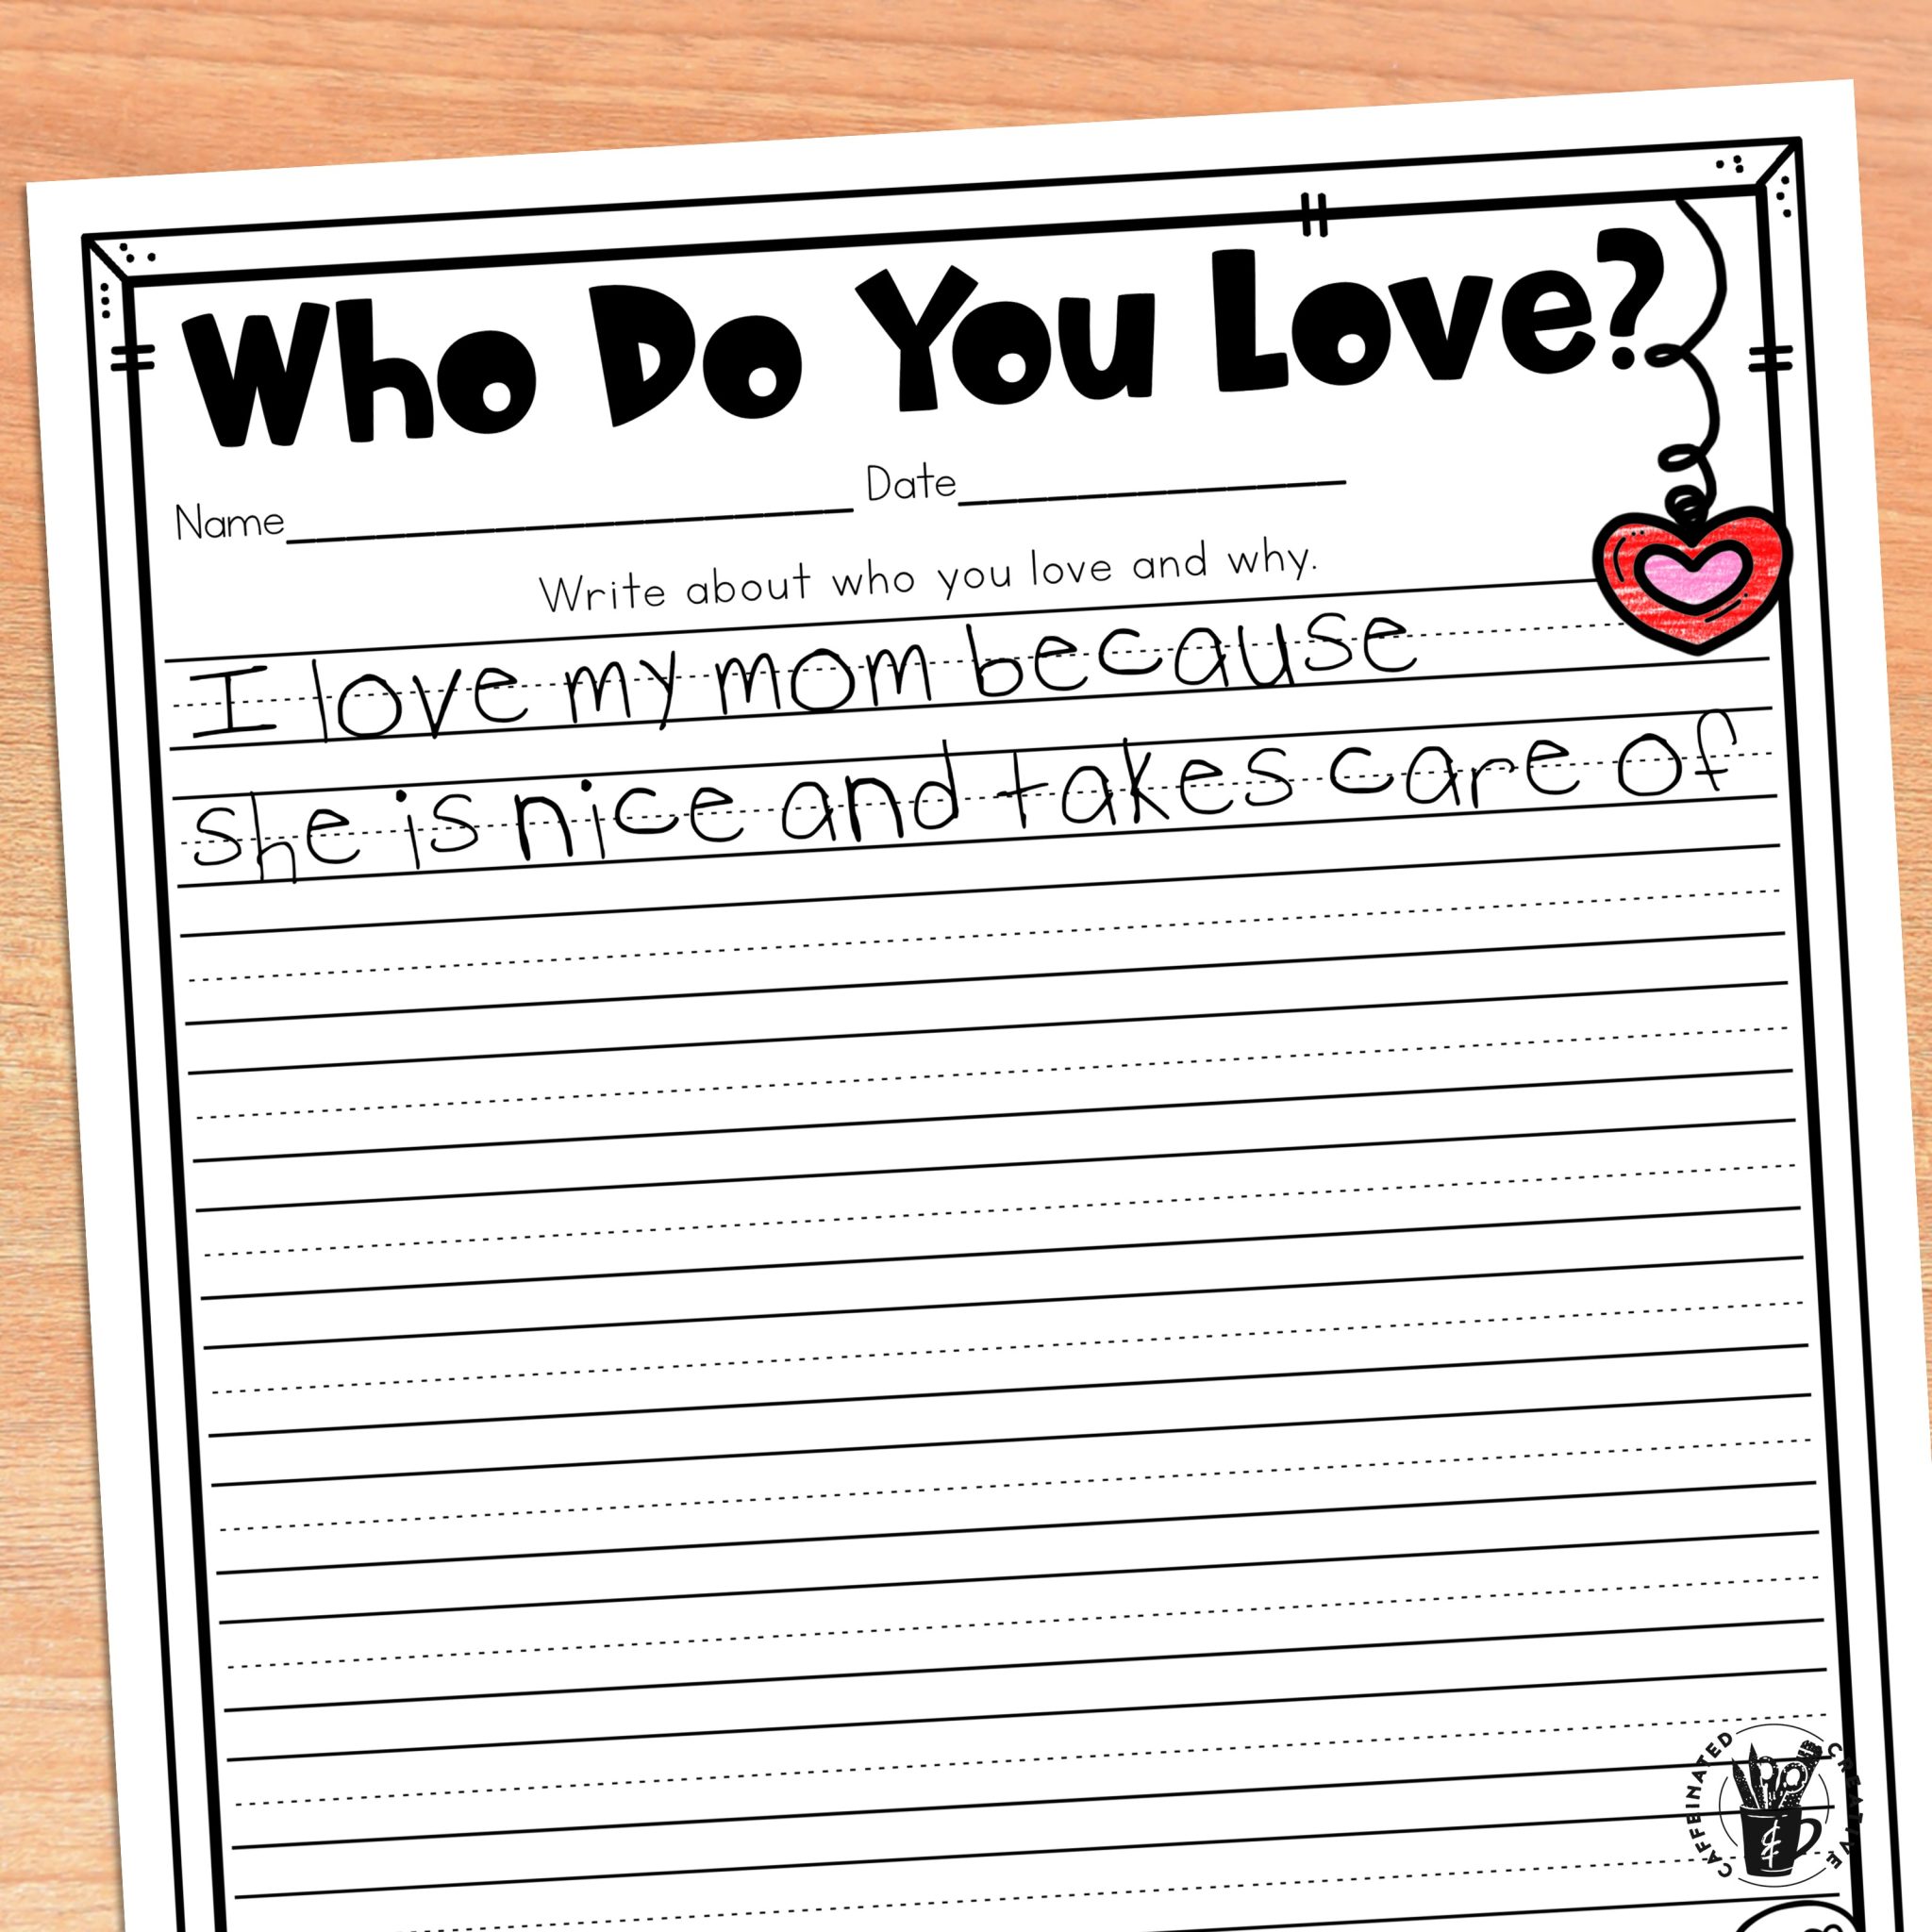 Who Do You Love?
Name Date
Write about who you love and why.
I love my mom because
she is nice and takes care of
CAFFEINATED CREATIVE